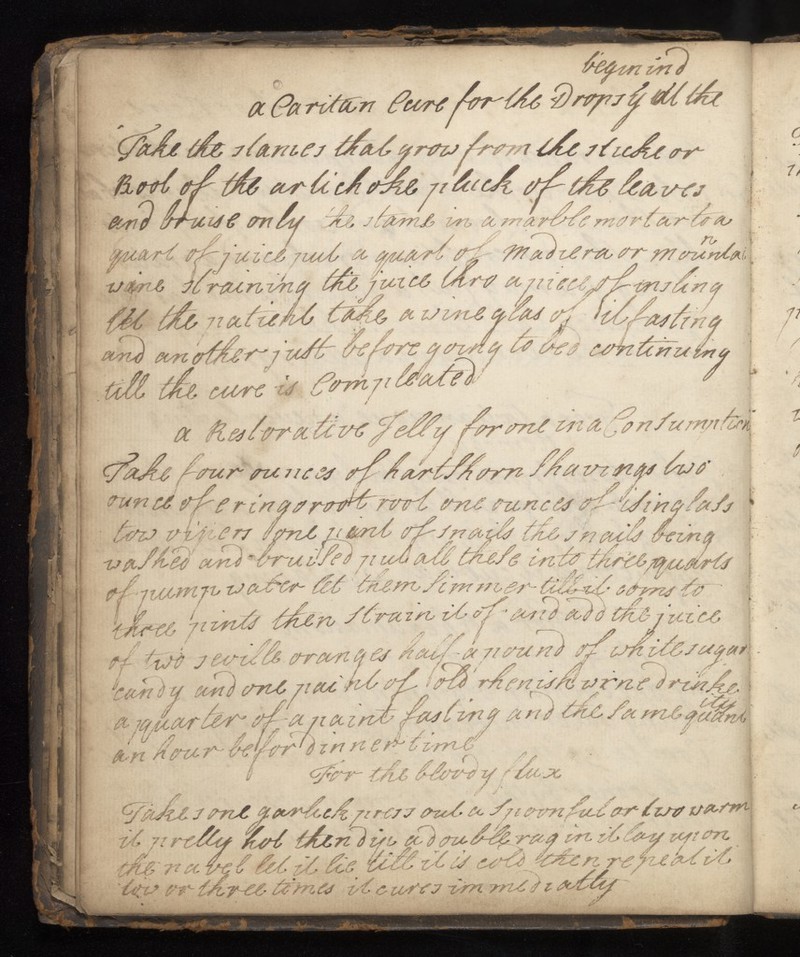 begining
a Caritan Cure for the Dropsy att the
Take the stames that grow from the sticke or
Root of the artichoke pluck of the leaves
and bruise only the stame in a marble mortar to a
quart of juice put a quart of madiera or mountai
n
wine straining the juice thro a piece of musling
let the patient take a wine glas of it fasting
and another just before going to bed continuing
till the cure is Compleated
a Restorative Jelly for one in a Consumption
Take four ounces of hartshorn shavings two
ounce of eringo root root one ounces of isinglass
tow vipers one pient of snails the snails being
washed and bruised put all these into three quarts
of pump water let them simmer till it coms to
three pints then strain it of and add the juice
of two seville oranges half a pound of white sugar
candy and one paint of old rhenish wine drinke
a quarter of a paint fasting and the same quant
ity
an hour befor dinner time
For the bloody flux
Take some garlick press out a spoonful or two warm
it pretty hot then dip a double rag in it lay upon
the navel let it lie till it is cold then repeat it
tow or three times it cures immediatly